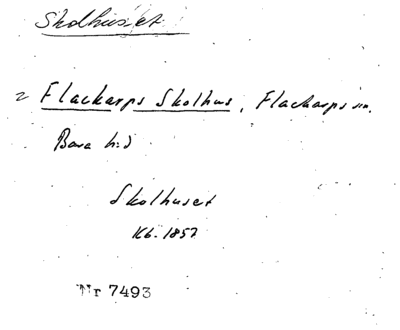 Skolhuset
= Flackarps Skolhus, Flackarps sn.
Bara h:d
Skolhuset
Kb. 1857
Nr 7493